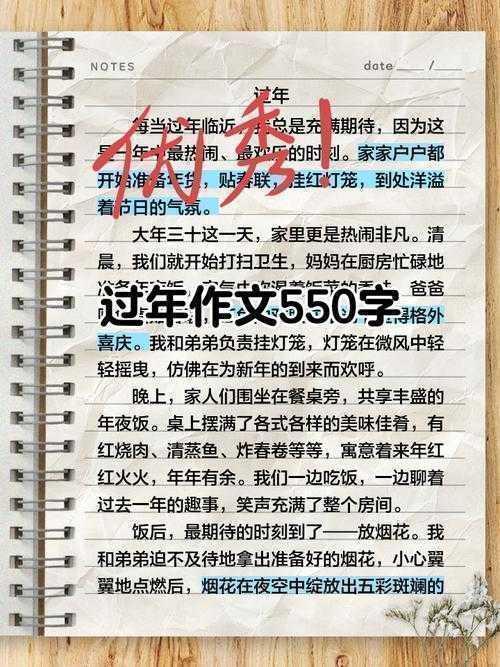 NOTES
date ___ / ___
过年
每当过年临近，我总是充满期待，因为这
是一年中最热闹、最欢乐的时刻。家家户户都
开始准备年货，贴春联，挂红灯笼，到处洋溢
着节日的气氛。
优秀！
大年三十这一天，家里更是热闹非凡。清
晨，我们就开始打扫卫生，妈妈在厨房忙碌地
爸爸
过年作文550字
得格外
喜庆。我和弟弟负责挂灯笼，灯笼在微风中轻
轻摇曳，仿佛在为新年的到来而欢呼。
晚上，家人们围坐在餐桌旁，共享丰盛的
年夜饭。桌上摆满了各式各样的美味佳肴，有
红烧肉、清蒸鱼、炸春卷等等，寓意着来年红
红火火，年年有余。我们一边吃饭，一边聊着
过去一年的趣事，笑声充满了整个房间。
饭后，最期待的时刻到了——放烟花。我
和弟弟迫不及待地拿出准备好的烟花，小心翼
翼地点燃后，烟花在夜空中绽放出五彩斑斓的